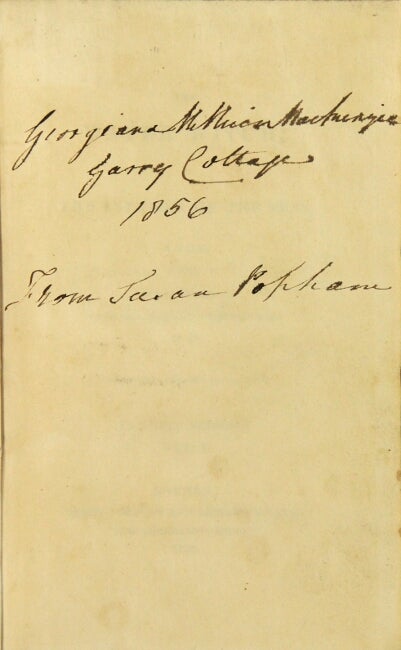 Georgiana McMicar Mackenzie
Garry Cottage
1856
From Susan Popham